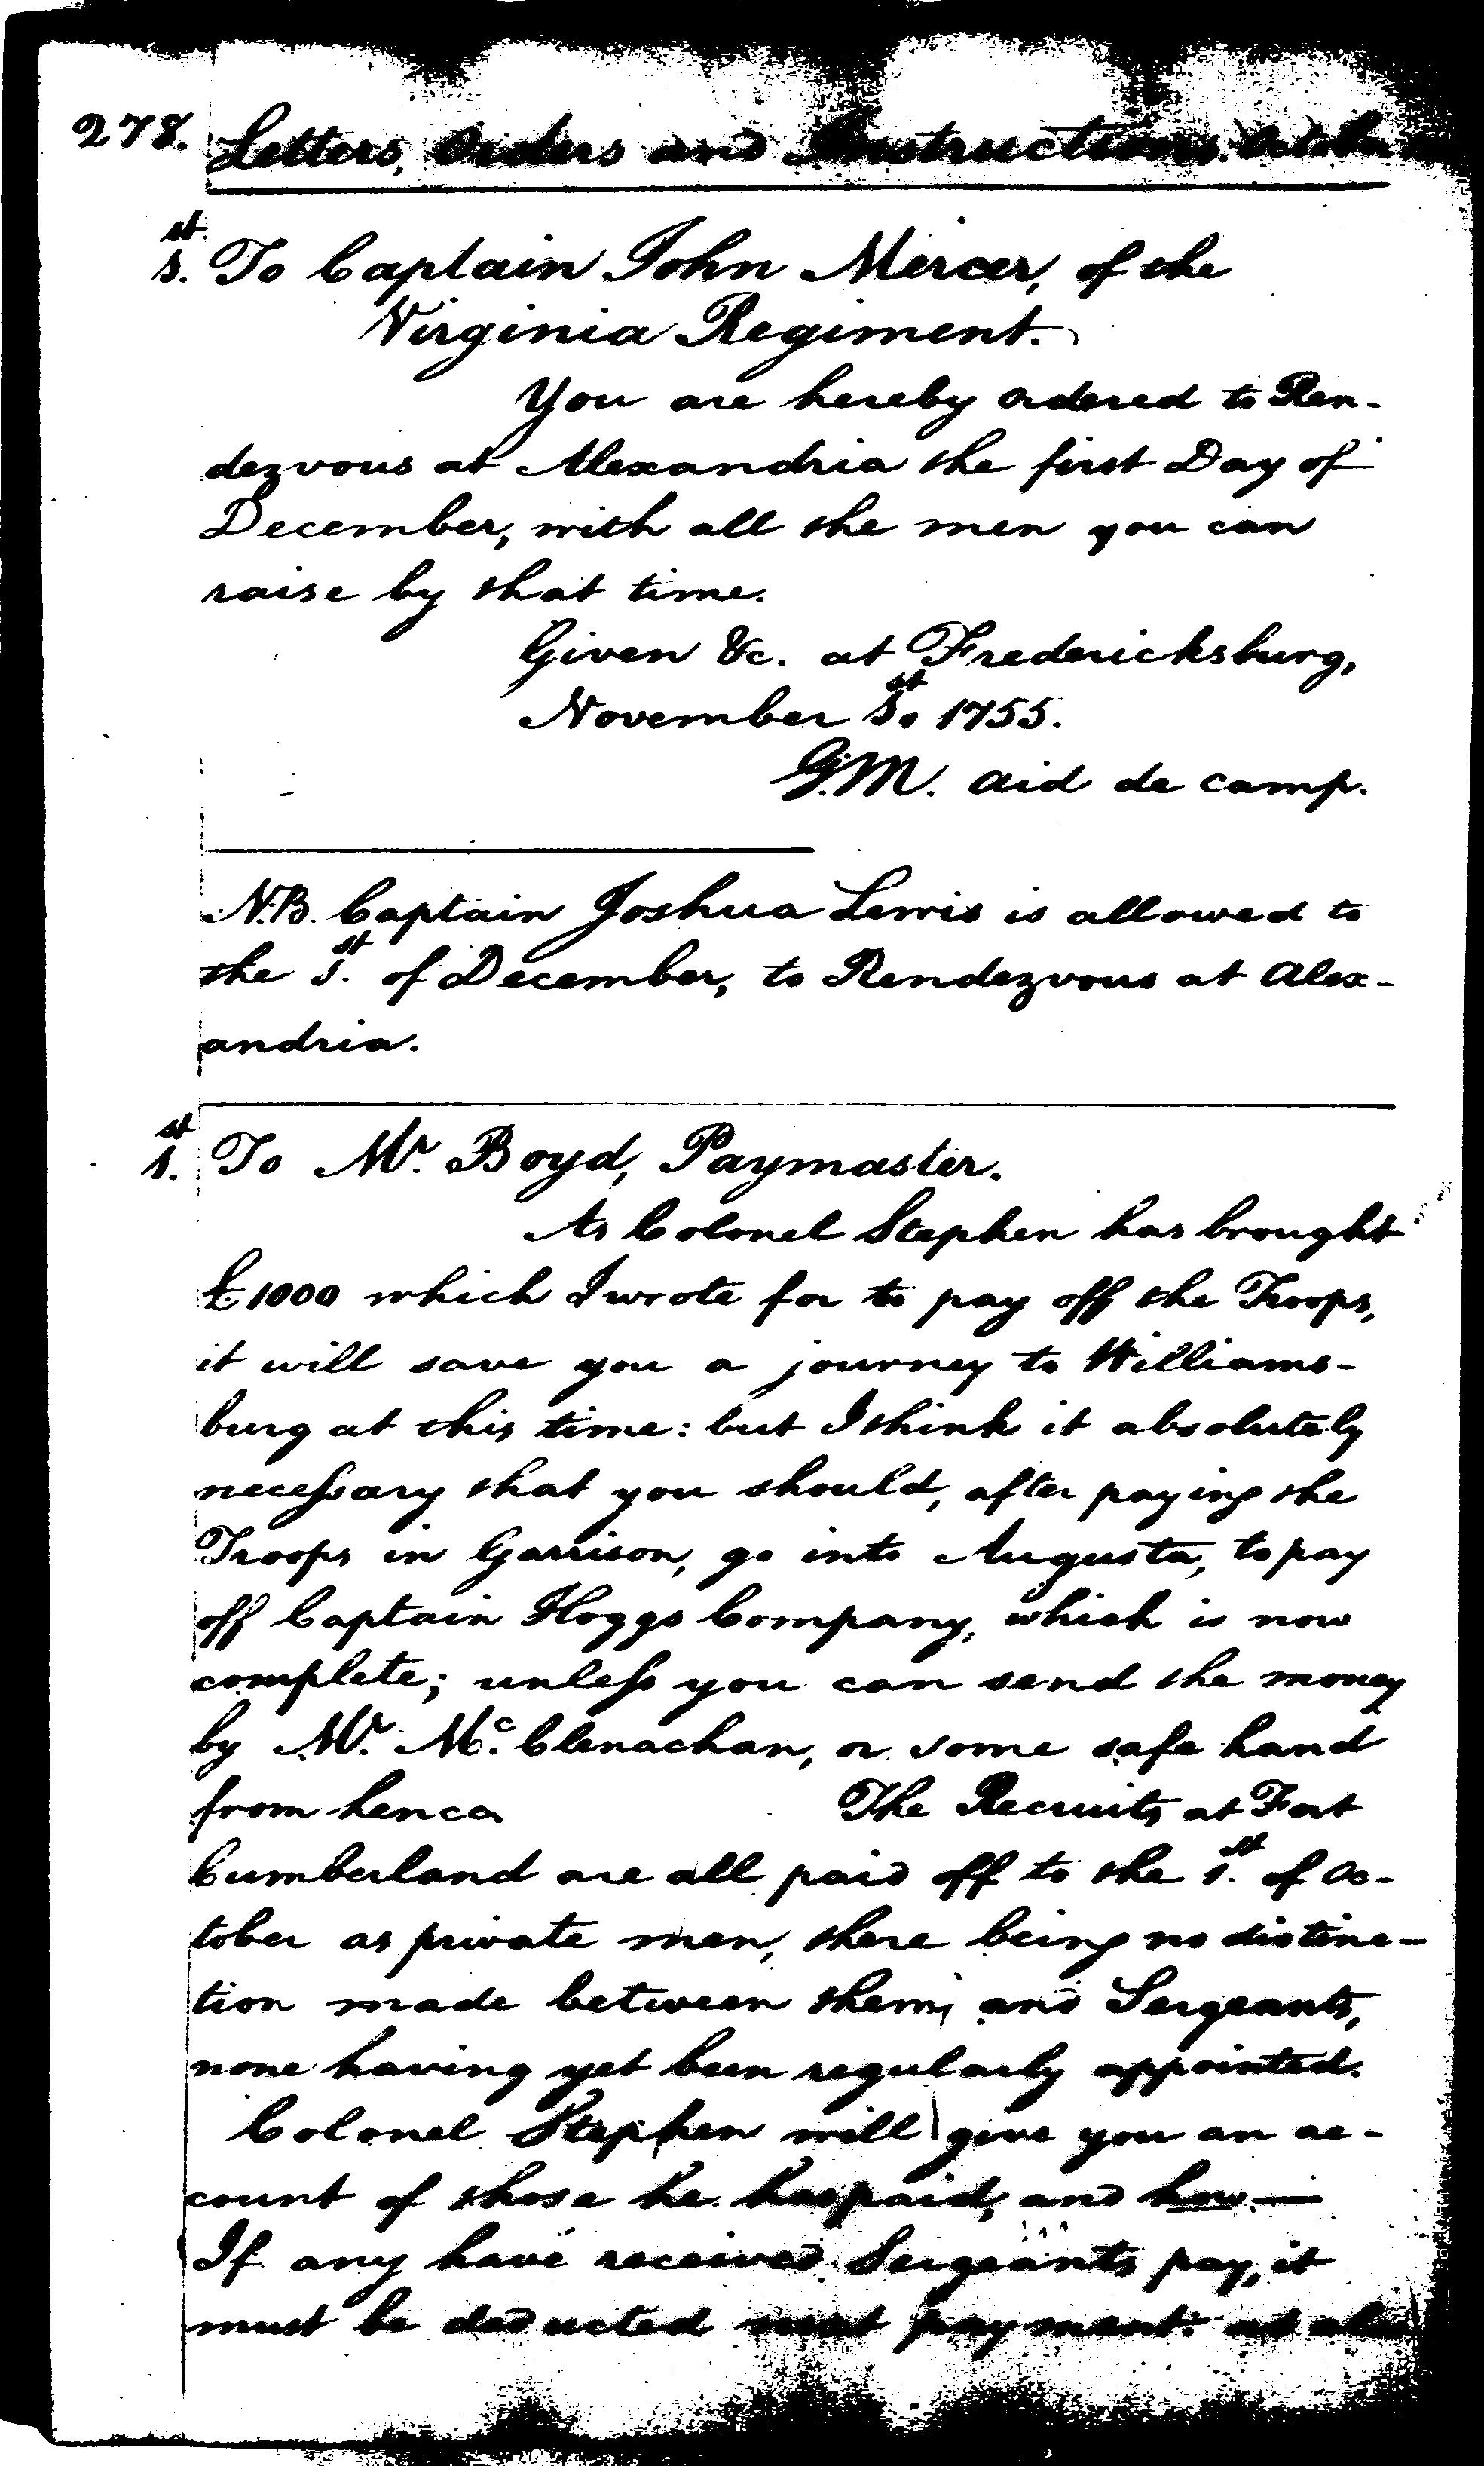 278. Letters, Orders and Instructions. October
1st. To Captain John Mercer, of the
Virginia Regiment.
You are hereby ordered to Ren-
dezvous at Alexandria the first Day of
December, with all the men you can
raise by that time.
Given &c. at Fredericksburg,
November 1st. 1755.
G.M. aid de camp.
N.B. Captain Joshua Lewis is allowed to
the 1st. of December, to Rendezvous at Alex-
andria.
1st. To Mr. Boyd, Paymaster.
As Colonel Stephen has brought
£1000 which I wrote for to pay off the Troops,
it will save you a journey to Williams-
burg at this time: but I think it absolutely
necessary that you should, after paying the
Troops in Garrison, go into Augusta, to pay
off Captain Hoggs Company, which is now
complete; unless you can send the money
by Mr. Mc. Clenachan, or some safe hand
from hence. The Recruits at Fort
Cumberland are all paid off to the 1st. of Oc-
tober as private men, there being no distinc-
tion made between them, and Sergeants,
none having yet been regularly appointed.
Colonel Stephen will give you an ac-
count of those he has paid, and how—
If any have received Sergeants pay, it
must be deducted next payment: as